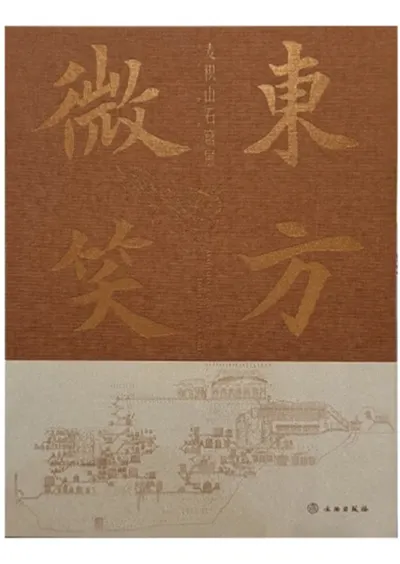 東方
微笑
麦积山石窟展
文物出版社